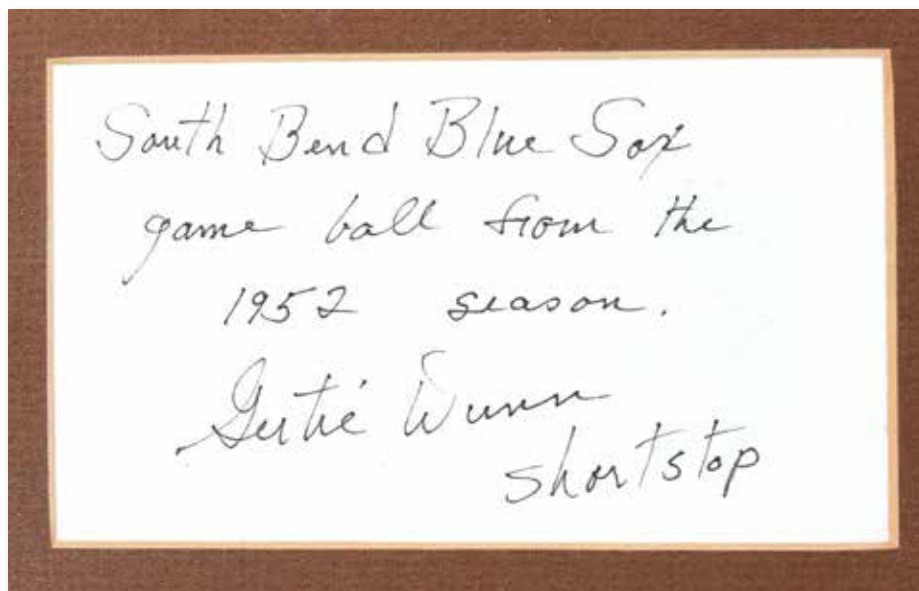 South Bend Blue Sox
game ball from the
1952 season.
Gertie Dunn
shortstop